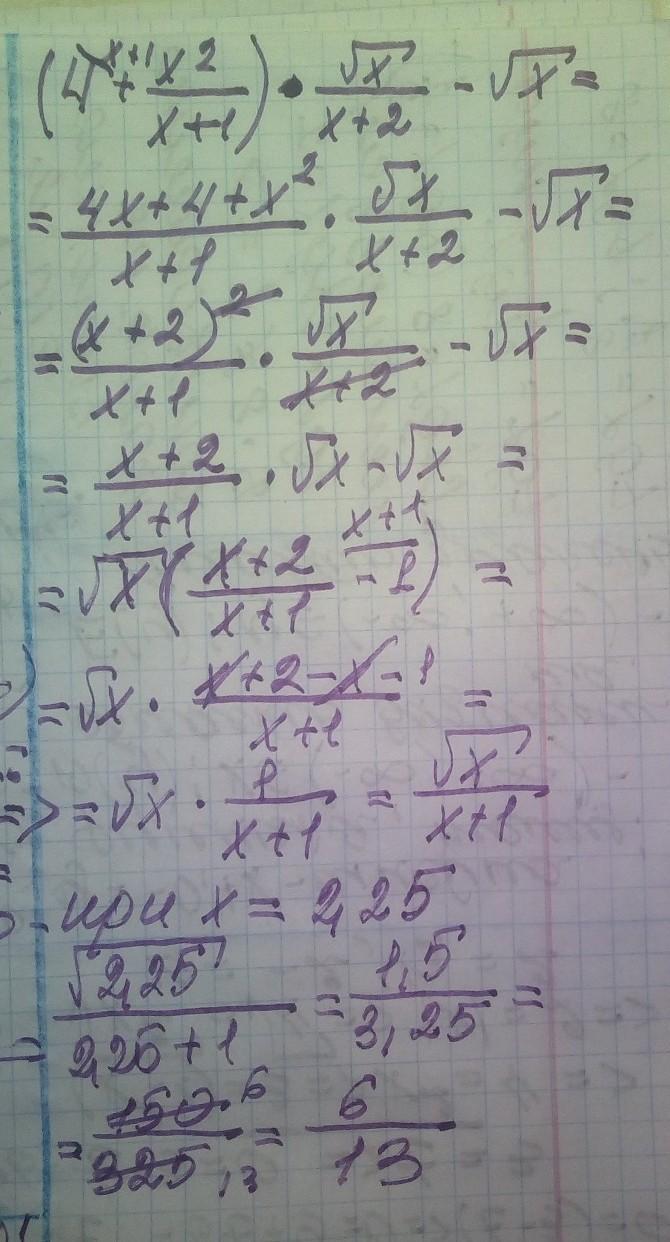 (4^{x+1} + x2/(x+1)) • √x/(x+2) - √x =
= (4x+4+x²)/(x+1) · √x/(x+2) - √x =
= (x+2)²/(x+1) · √x/(x+2) - √x =
= (x+2)/(x+1) · √x - √x =
= √x ((x+2)/(x+1) - 1^{x+1}) =
= √x · (x+2-x-1)/(x+1) =
= √x · 1/(x+1) = √x/(x+1)
при x = 2,25
= √2,25/(2,25+1) = 1,5/3,25 =
= 150 6/325 13 = 6/13